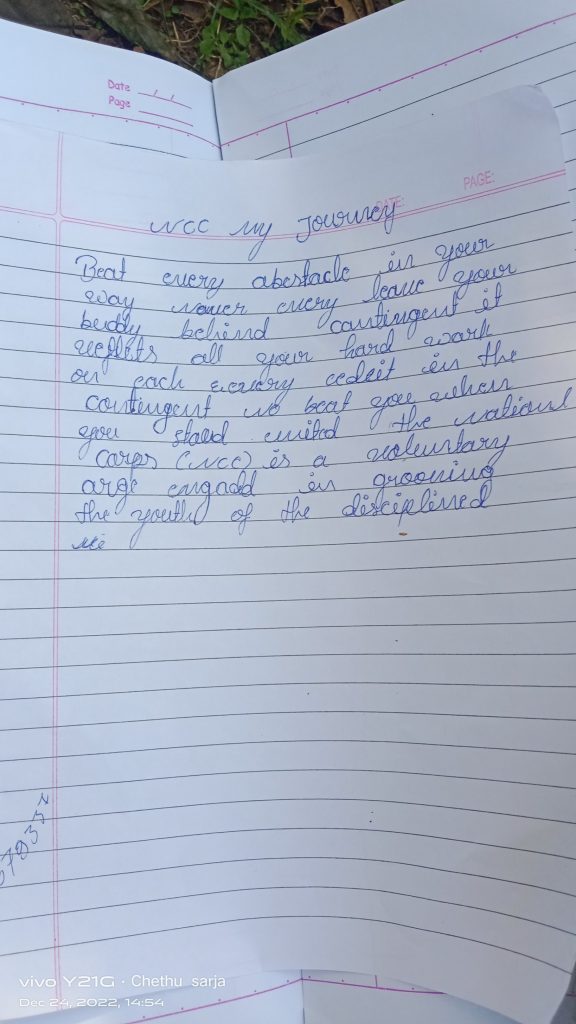 Date
Page
DATE:
PAGE:
NCC My Journey
Beat every abestacle in your
way never every leave your
buddy behind contingent it
reflets all your hard work
on each every cedeit in the
contingent no beat you when
you stand united the National
Carps (NCC) is a voluntary
arge engadd in grooning
the youth of the disciplined
vivo Y21G · Chethu sarja
Dec 24, 2022, 14:54